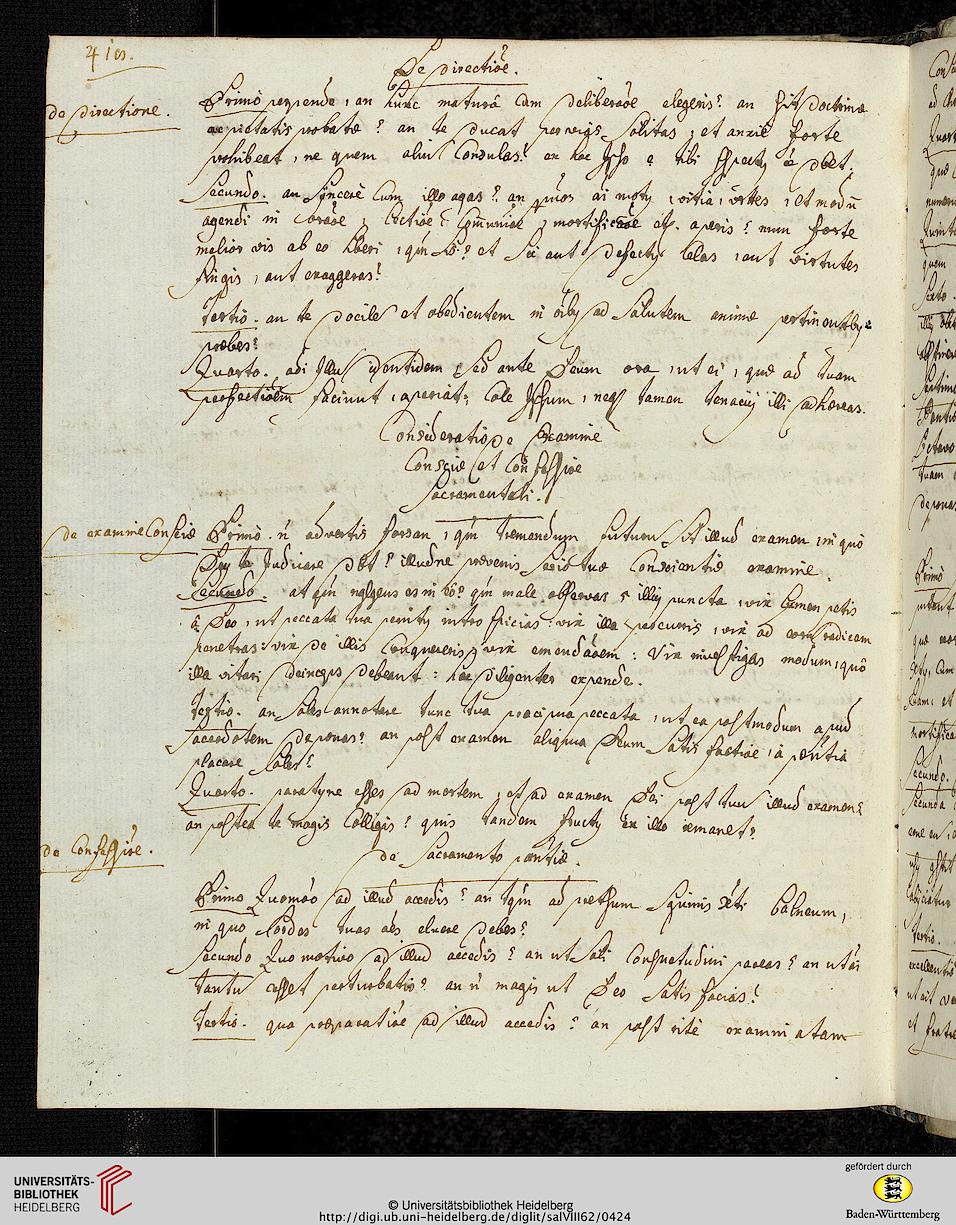 De Directiõe.
de Directione.
Primò perpende, an hunc maturâ cum deliberaõe elegeris? an sit doctrinæ
ac pietatis probatæ? an te ducat per vias solitas, et anxiè forte
prohibeat, ne quem alium consulas? ex hoc ipso
Secundo. an sincerè cum illo agas? an motus, vitia, vrtes, et modũ
agendi in oraõe, lectiõe, cõmuniõe, mortificaõe etc. aperis? num forte
melior vis ab eo haberi, quàm et aut defectus celas, aut virtutes
fingis, aut exaggeras?
Tertio. an te docilem et obedientem in oĩbus ad salutem animæ pertinentibus
præbes?
Quarto. adi illum identidem, sed ante Deum ora, ut ei, quæ ad tuam
perfectiõem faciunt, aperiat; cole ipsum, neque tamen tenacius illi adhæreas.
Consideratio de Examine
Consciæ et Confessiõe
Sacramentali.
de examine Consciæ
Primò. ñ advertis forsan, quàm tremendum futurum sit illud examen, in quo
Deus te judicare debet? illudne prævenis sæpe tuæ conscientiæ examine.
Secundo. at quàm negligens es in hoc? quàm male observas 5 illius puncta, vix lumen petis
â Deo, ut peccata tua penitus introspicias: vix illa percurris, vix ad eorum radicem
penetras: vix de illis conquereris, vix emendaõem: vix investigas modum, quô
illa vitari deinceps debeant: hæc diligenter expende.
Tertio. an soles annotare tunc tua præcipua peccata, ut ea postmodum apud
sacerdotem deponas? an post examen aliqua Deum satisfactiõe, â pœntia
placare soles?
Quarto. paratusne esses ad mortem, et ad examen Dei post tuum illud examen?
an postea te magis colligis? quis tandem fructus ex illo remanet?
de Confessiõe.
de Sacramento pœntiæ.
Primo Quomodo ad illud accedis? an tanquam ad pretiosum sanguinis Xti balneum,
in quo sordes tuas oẽs eluere debes?
Secundo Quo motivo ad illud accedis? an ut soli consuetudini pareas? an ut
tantum cesset perturbatio? an ñ magis ut Deo satisfacias?
Tertio. qua præparatiõe ad illud accedis? an post ritè examinatam
UNIVERSITÄTS-
BIBLIOTHEK
HEIDELBERG
© Universitätsbibliothek Heidelberg
http://digi.ub.uni-heidelberg.de/diglit/salVIII62/0424
gefördert durch
Baden-Württemberg